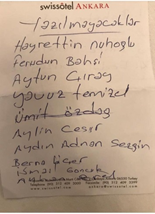 swissôtel ANKARA
Yazılmayacaklar
Hayrettin Nuhoğlu
Ferudun Bahşi
Aytun Çıray
Yavuz Temizel
Ümit Özdağ
Aylin Cesur
Aydın Adnan Sezgin
Berna
İsmail